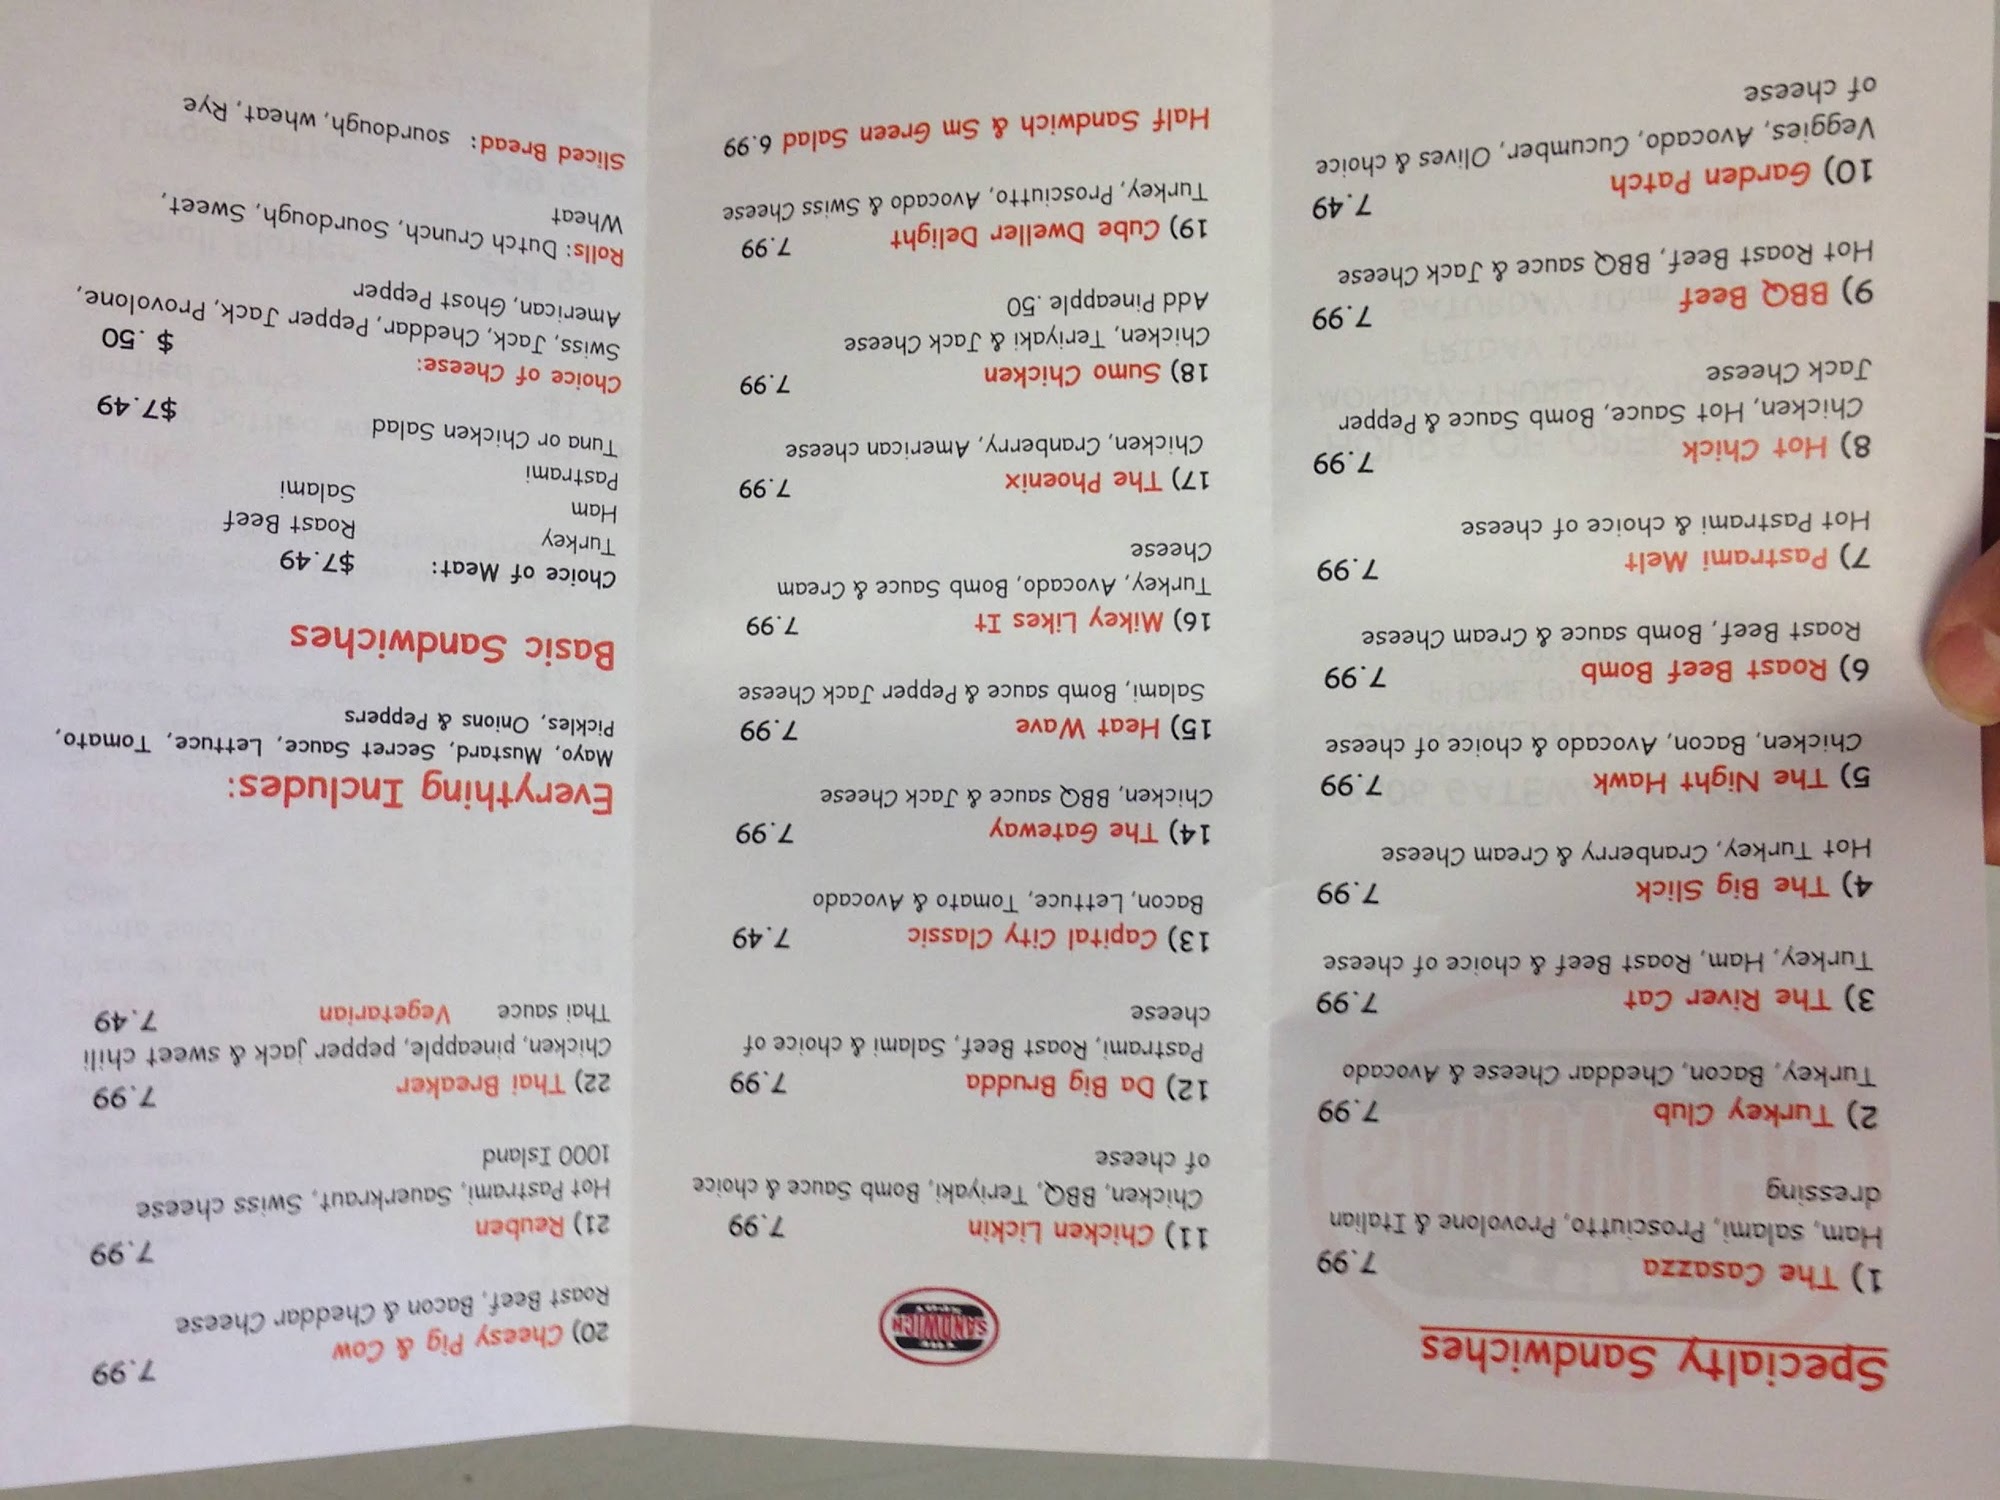 Specialty Sandwiches
1) The Casazza 7.99
Ham, salami, Prosciutto, Provolone & Italian
dressing
2) Turkey Club 7.99
Turkey, Bacon, Cheddar Cheese & Avocado
3) The River Cat 7.99
Turkey, Ham, Roast Beef & choice of cheese
4) The Big Slick 7.99
Hot Turkey, Cranberry & Cream Cheese
5) The Night Hawk 7.99
Chicken, Bacon, Avocado & choice of cheese
6) Roast Beef Bomb 7.99
Roast Beef, Bomb sauce & Cream Cheese
7) Pastrami Melt 7.99
Hot Pastrami & choice of cheese
8) Hot Chick 7.99
Chicken, Hot Sauce, Bomb Sauce & Pepper
Jack Cheese
9) BBQ Beef 7.99
Hot Roast Beef, BBQ sauce & Jack Cheese
10) Garden Patch 7.49
Veggies, Avocado, Cucumber, Olives & choice
of cheese
THE
SANDWICH
SPOT
11) Chicken Lickin 7.99
Chicken, BBQ, Teriyaki, Bomb Sauce & choice
of cheese
12) Da Big Brudda 7.99
Pastrami, Roast Beef, Salami & choice of
cheese
13) Capital City Classic 7.49
Bacon, Lettuce, Tomato & Avocado
14) The Gateway 7.99
Chicken, BBQ sauce & Jack Cheese
15) Heat Wave 7.99
Salami, Bomb sauce & Pepper Jack Cheese
16) Mikey Likes It 7.99
Turkey, Avocado, Bomb Sauce & Cream
Cheese
17) The Phoenix 7.99
Chicken, Cranberry, American cheese
18) Sumo Chicken 7.99
Chicken, Teriyaki & Jack Cheese
Add Pineapple .50
19) Cube Dweller Delight 7.99
Turkey, Prosciutto, Avocado & Swiss Cheese
Half Sandwich & Sm Green Salad 6.99
20) Cheesy Pig & Cow 7.99
Roast Beef, Bacon & Cheddar Cheese
21) Reuben 7.99
Hot Pastrami, Sauerkraut, Swiss cheese
1000 Island
22) Thai Breaker 7.99
Chicken, pineapple, pepper jack & sweet chili
Thai sauce Vegetarian 7.49
Everything Includes:
Mayo, Mustard, Secret Sauce, Lettuce, Tomato,
Pickles, Onions & Peppers
Basic Sandwiches
Choice of Meat: $7.49
Turkey Roast Beef
Ham Salami
Pastrami
Tuna or Chicken Salad $7.49
Choice of Cheese: $ .50
Swiss, Jack, Cheddar, Pepper Jack, Provolone,
American, Ghost Pepper
Rolls: Dutch Crunch, Sourdough, Sweet,
Wheat
Sliced Bread: sourdough, wheat, Rye